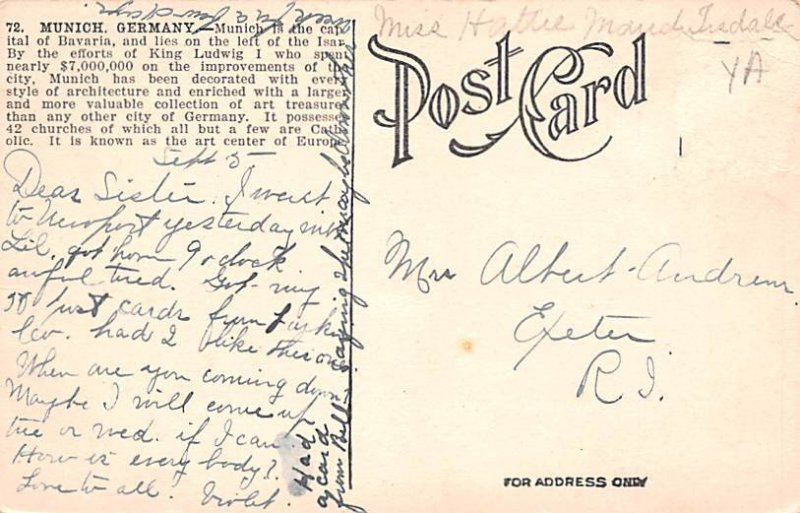 72. MUNICH, GERMANY—Munich is the cap-
ital of Bavaria, and lies on the left of the Isar.
By the efforts of King Ludwig I who spent
nearly $7,000,000 on the improvements of the
city, Munich has been decorated with every
style of architecture and enriched with a larger
and more valuable collection of art treasures
than any other city of Germany. It possesses
42 churches of which all but a few are Cath-
olic. It is known as the art center of Europe.
Sept 5
Dear Sister. I went
to Newport yesterday with
Lil. got hom 9 oclock
awful tired. Got my
50 post cards from
Co. had 2 like this one
When are you coming down
Maybe I will come up
tue or wed. if I can.
How is every body?
Love to all. Violet.
Had
a card
from Bill saying he maybe
week in a few days.
Miss Hattie Maud Tisdale
YA
Post Card
Mrs Albert Andrews
Exeter
R I.
FOR ADDRESS ONLY